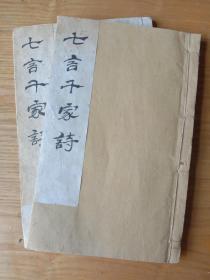 七言千家詩
七言千家